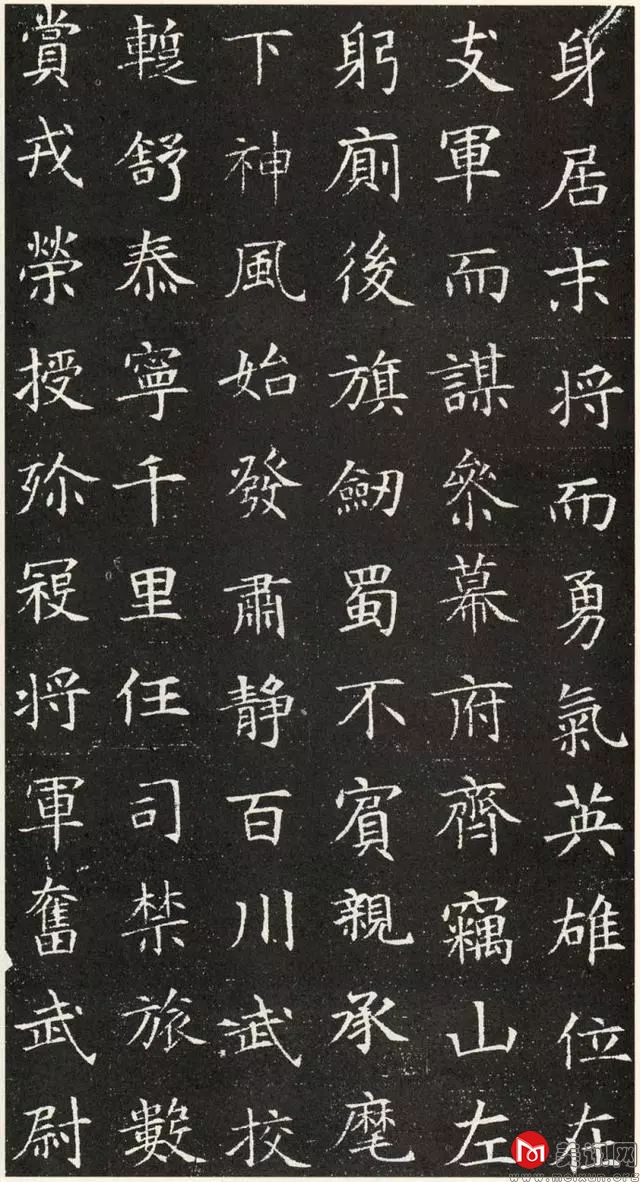 身居末将而勇氣英雄位在
支軍而謀參幕府齊竊山左
躬廁後旗劒蜀不賓親承麾
下神風始發肅静百川武挍
蹔舒泰寧千里任司禁旅數
賞戎榮授殄寇将軍奮武尉
美讯网
www.meixun.org